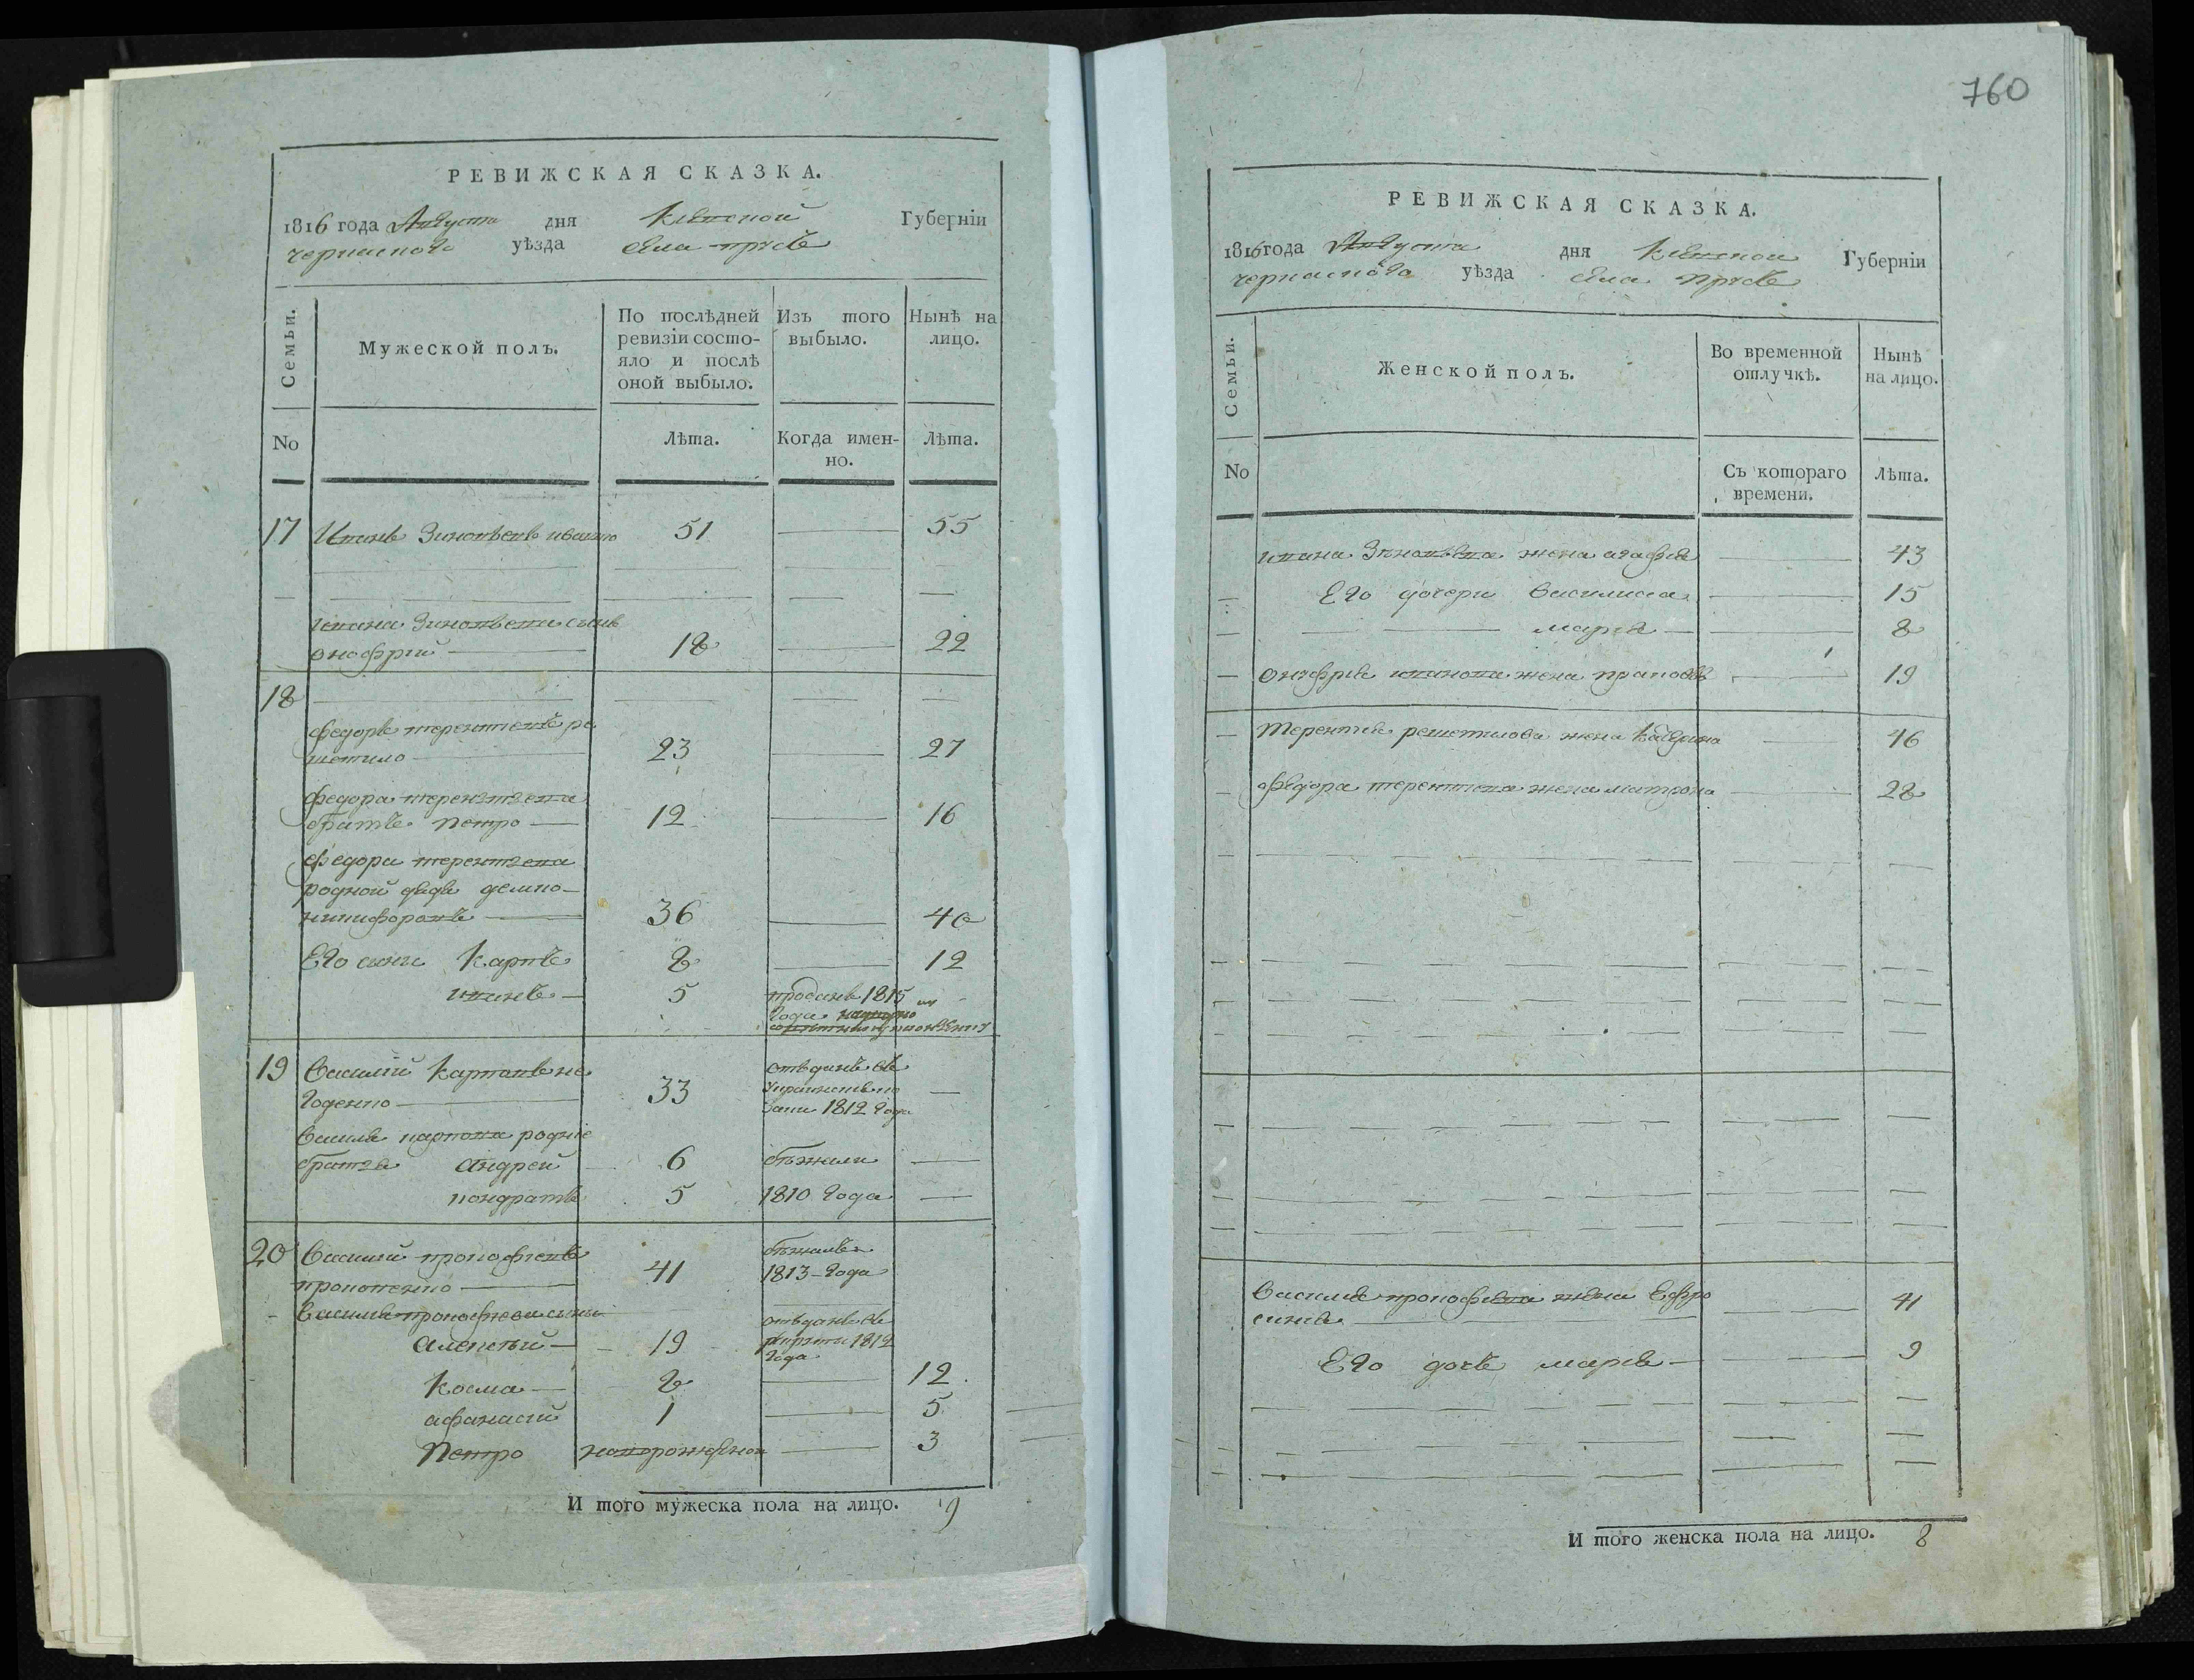 РЕВИЖСКАЯ СКАЗКА.
1816 года Августа дня Киевской Губерніи
черкаского уѣзда села
Семьи.
Мужеской полъ.
По послѣдней ревизіи состо-
яло и послѣ
оной выбыло.
Изъ того
выбыло.
Нынѣ на
лицо.
No
Лѣта.
Когда имен-
но.
Лѣта.
17 Иванъ Зиновьевъ 51 55
Ивана Зиновьева сынъ
онофрий 18 22
18
федоръ терентьевъ ре
шетило 23 27
федора терентьева
братъ Петро 12 16
федора терентьева
родной дядя
никифоровъ 36 40
Его сыны Карпъ 8 12
иванъ 5 проданъ 1815
года
19 Василий Карповъ не
годенко 33 отъданъ въ
1812 года
Василя карпова родніе
братья андрей 6 бѣжали
кондратъ 5 1810 года
20 Василий прокофиевъ
прокопенко 41 бѣжалъ
1813 года
Василия прокофиева сыны
алексѣй 19 отъданъ въ
рекруты 1812
года
Косма 8 12
афанасий 1 5
Петро новорожденой 3
И того мужеска пола на лицо. 9
760
РЕВИЖСКАЯ СКАЗКА.
1816 года Августа дня Киевской Губерніи
черкаского уѣзда села
Семьи.
Женской полъ.
Во временной
отлучкѣ.
Нынѣ
на лицо.
No
Съ котораго
времени.
Лѣта.
ивана Зѣновьева жена агафия 43
Его дочери Василиса 15
мария 8
онуфрия иванова жена 19
терентия решетилова жена 46
федора терентьева жена матрона 28
Василия прокофьева жена Ефро
синия 41
Его дочь мария 9
И того женска пола на лицо. 8